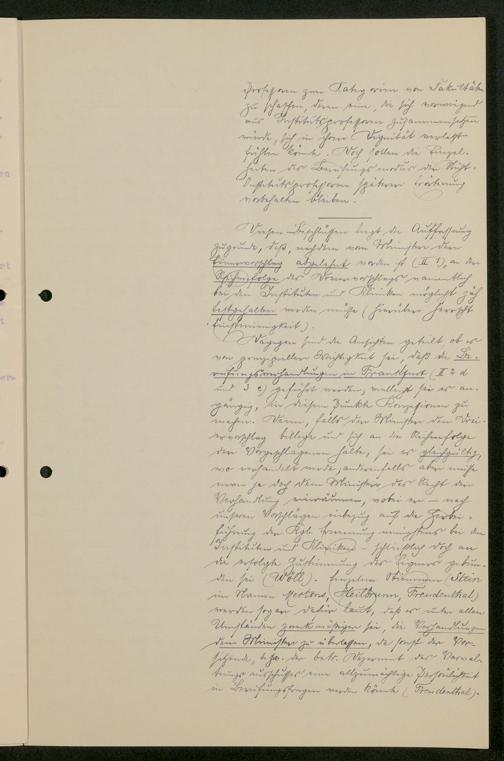 Professoren zwei Kategorien von Fakultäten
zu schaffen, deren eine, die sich vorwiegend
aus Institutsprofessoren zusammensetzen
würde, sich in ihrer Dignität verletzt
fühlen könnte. Doch sollen die Einzel-
heiten des Berufungsmodus der Nicht-
Institutsprofessoren späterer Erörterung
vorbehalten bleiben.
Diesen Beschlüssen liegt die Auffassung
zugrunde, daß, nachdem vom Minister der
Einervorschlag abgelehnt worden ist (II 1), an der
Reihenfolge des Dreiervorschlags namentlich
bei den Instituten und Kliniken möglichst zäh
festgehalten werden müsse (hierüber herrscht
Einstimmigkeit).
Dagegen sind die Ansichten geteilt ob es
von prinzipieller Wichtigkeit sei, daß die Be-
rufungsverhandlungen in Frankfurt (II 2 d
und 3 c) geführt werden, vielleicht sei es an-
gängig, in diesem Punkte Konzessionen zu
machen. Denn, falls der Minister den Drei-
ervorschlag billige und sich an die Reihenfolge
der Vorgeschlagenen halte, sei es gleichgültig,
wo verhandelt werde, anderenfalls aber müsse
man ja doch dem Minister das Recht der
Verhandlung einräumen, wobei er nach
unseren Vorschlägen inbezug auf die Herbei-
führung der Kgl. Ernennung wenigstens bei den
Instituten und Kliniken schließlich doch an
die erfolgte Zustimmung des Kurators gebun-
den sei (Wöll). Einzelne Stimmen (Stein
im Namen Mertons, Heilbrunn, Freudenthal)
werden sogar dahin laut, daß es unter allen
Umständen zweckmäßiger sei, die Verhandlungen
dem Minister zu überlassen, da sonst der Vor-
sitzende, bzw. der betr. Dezernent des Verwal-
tungsausschusses eine allzumächtige Persönlichkeit
in Berufungsfragen werden könnte (Freudenthal).